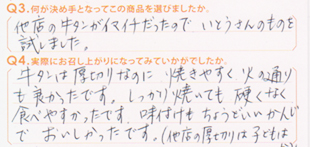 Q3.何が決め手となってこの商品を選びましたか。
他店の牛タンがイマイチだったので いとうさんのものを
試しました。
Q4.実際にお召し上がりになってみていかがでしたか。
牛タンは厚切りなのに 焼きやすく 火の通り
も良かったです。しっかり焼いても 硬くなく
食べやすかったです。味付けも ちょうどいいかんじ
で おいしかったです。(他店の厚切りは子どもは